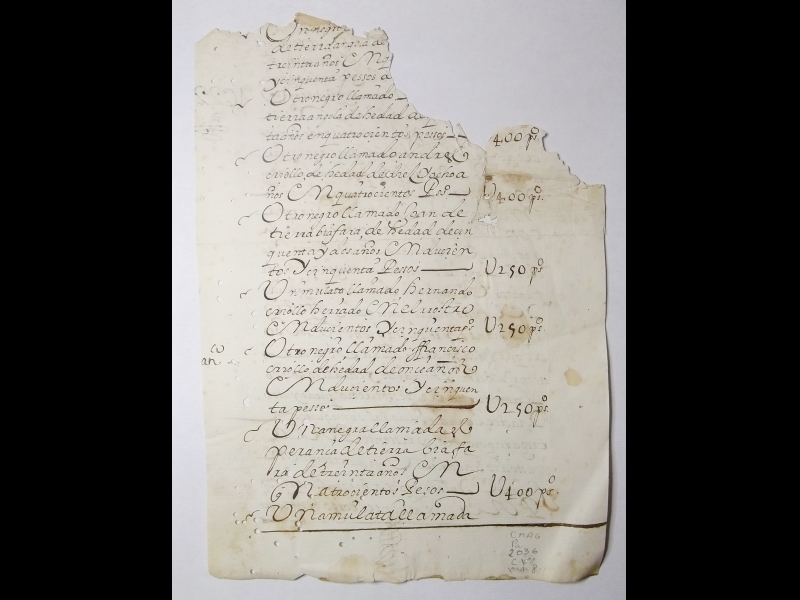 Un negr
de tierra angola de
treinta años EN q
y cinquenta pessos a
Otro negro llamado
tierra angola de hedad de
ta años en quatrocientos pessos — 400 ps
Otro negro llamado andres
criollo de hedad de
ños EN quatrocientos Pos — U400 ps
Otro negro llamado Joan de
tierra biafara, de hedad de cin
quenta y dos años EN ducien
tos y cinquenta Pesos — U250 ps
Un mulato llamado hernando
criollo herrado EN el rostro
EN ducientos y cinquenta ps U250 ps
Otro negro llamado ffrancisco
criollo de hedad de once años
EN ducientos y cinquen
ta pessos — U250 ps
Una negra llamada
peranca de tierra biafa
ra de treinta años EN
quatrocientos Pesos — U400 ps
Una mulata llamada
co
an
2036